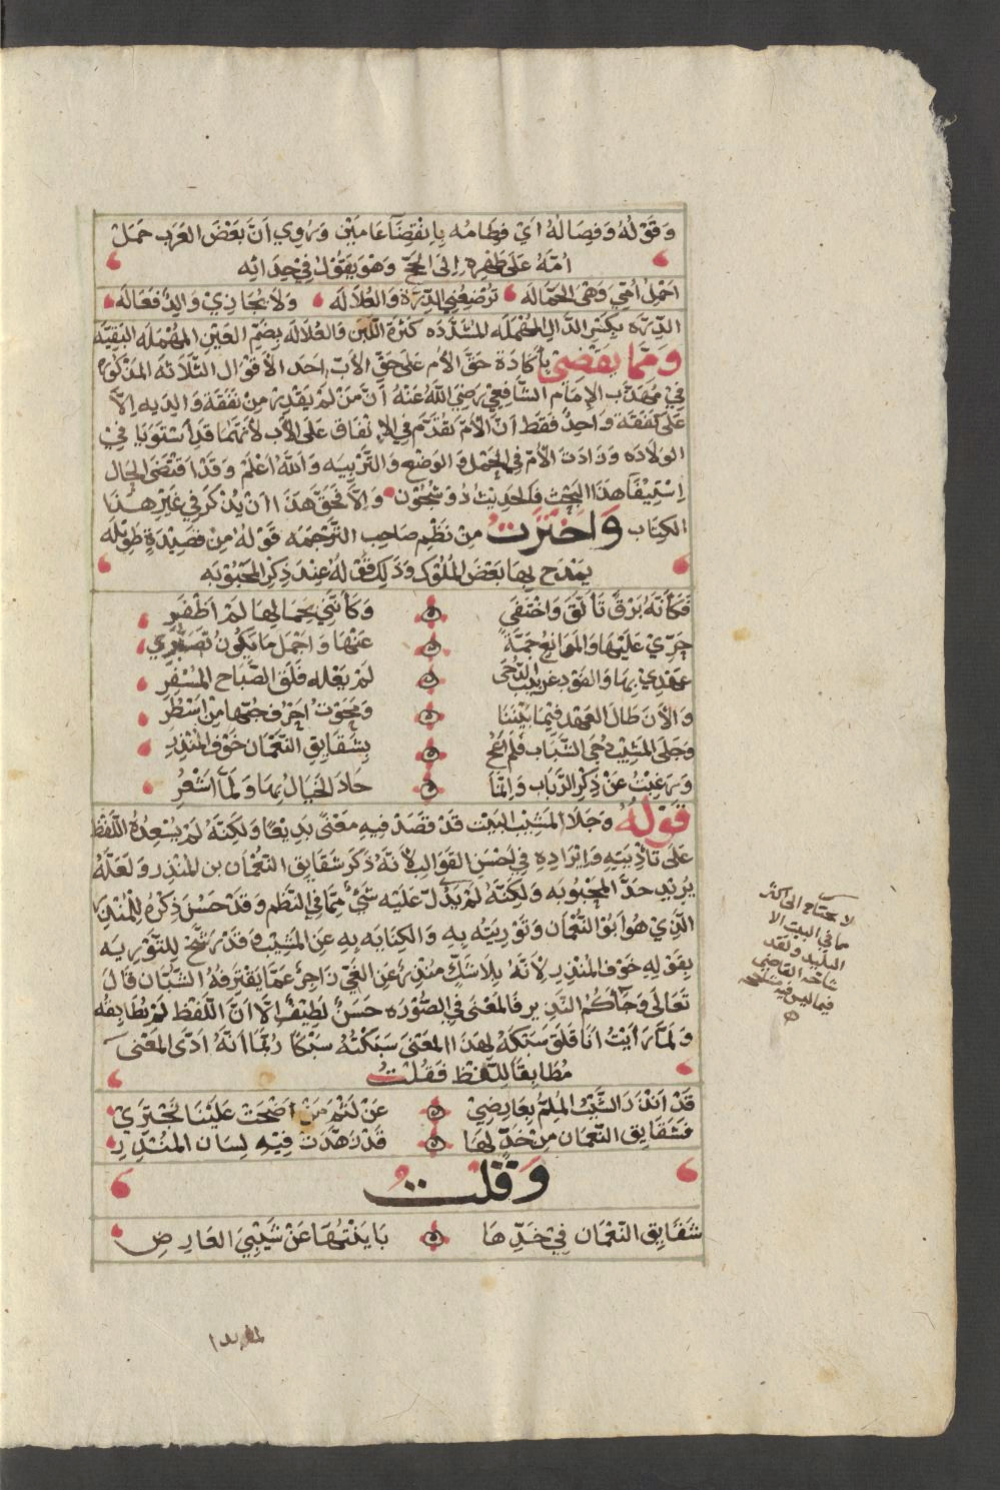 وَقَوْلُهُ وَفِصَالُهُ اَيْ فِطَامُه بِاِنْقِضَآءِ عَامَيْن وَرُوِي اَنَّ بَعْضَ العَرَبِ حَمَلَ
اُمَّهُ عَلَى ظَهْرِهِ اِلَى الْحَجّ وَهْوَ يَقُوْلُ فِيْ حِدَائِه
اَحْمِلُ اُمِّي وَهْيَ الحَمَّالَه تُرْضِعُنِي الدِّرَّةَ وَالعُلَالَه وَلَا يُجَازِيْ وَالِدٌ فَعَالَه
الدِّرَّه بِكَسْرِ الدَّالِ المُهْمَلَه المُشَدَّدَه كَثْرَةُ اللَّبَن وَالعُلَالَه بِضَمّ العَيْنِ المُهْمَلَه البَقِيَّه
وَمِمَّا يَقْضِيْ بِأَكَادَة حَقّ الأُم عَلَى حَقِّ الأَبّ اَحَد الأَقْوَال الثَّلَاثَه المَذْكُوْرَه
فِيْ مَذْهَب الإِمَام الشَّافِعِيْ رَضِيَ اللهُ عَنْهُ اَنَّ مَنْ لَمْ يَقْدِرْ مِنْ نَفَقَة وَالِدَيه اِلَّا
عَلَى نَفَقَة وَاحِدٍ فَقَط اَنَّ الأُمّ تُقَدَّم فِي الإِنْفَاق عَلَى الأَب لأَنَّهُمَا قَدِ اسْتَوَيَا فِيْ
الوِلَادَه وَزَادَتْ الأُمّ فِي الحَمْل وَالوَضْعِ وَالتَّرْبِيَه وَاللهُ اَعْلَمُ وَقَدْ اقْتَضَى الحَال
اِسْتِيْفَا هَذَا البَحْثِ وَالحَدِيْثُ ذُوْ شُجُوْن وَاِلَّا فَحَقُّ هَذَا اَنْ يُذْكَرَ فِيْ غَيْرِ هٰذَا
الكِتَاب وَاخْتَرْتُ مِنْ نَظْمِ صَاحِب التَّرْجَمَه قَوْلُهُ مِنْ قَصِيْدَةٍ طَوِيْلَه
يَمْدَح بِهَا بَعْضَ المُلُوْك وَذَلِكَ قَوْلُهُ عِنْدَ ذِكْرِ المَحْبُوْبَه
فَكَأَنَّهُ بَرْقٌ تَأَلَّقَ وَاخْتَفَى وَكَأَنَّنِي بِجَمَالِهَا لَمْ اَظْفَرِ
جَرِّيْ عَلَيْهَا وَالمَوَانِعُ جَمَّةٌ عَنْهَا وَاَجْمَل مَا يَكُوْنُ تَصَبُّرِي
عَهْدِيْ بِهَا وَالفَوْد غِرْبِيْبُ الدُّجَى لَمْ يَعْلُه فَلَق الصَّبَاح المُسْفِرِ
وَالآنَ طَالَ العَهْدُ فِيْمَا بَيْنَنَا وَمَحَوْتُ اَحْرُفَ حُبِّهَا مِنْ اَسْطُرِ
وَجَلَى المَشِيْبُ دُجَى الشَّبَاب فَلَمْ اَعُجْ بِشَقَايِقِ النُّعْمَان خَوْفَ المُنْذِرِ
وَرَغِبْتُ عَنْ ذِكْرِ الرَّبَابِ وَاِنَّمَا جَاد الخَيَالُ بِهَا وَلَمَّا اَشْعُرِ
قَوْلُهُ وَجَلَا المَشِيْب البَيْت قَدْ قَصَدَ فِيهِ مَعْنًى بَدِيْعًا وَلَكِنَّهُ لَمْ يُسْعِدْهُ اللَّفْظُ
عَلَى تَأْدِيَتِهِ وَاِيْرَادِهِ فِي اَحْسَنِ القَوَالِبِ لأَنَّهُ ذَكَرَ شَقَايِق النُّعْمَان بن المُنْذِر وَلَعَلَّهُ
يُرِيْد خَدَّ المَحْبُوْبَه وَلَكِنَّهُ لَمْ يَدُلّ عَلَيْه شَيْءٌ مِمَّا فِي النَّظْم وَقَدْ حَسُنَ ذِكْرُهُ لِلْمُنْذِر
الَّذِيْ هُوَ اَبُو النُّعْمَان وَتَوْرِيَتُهُ بِه وَالكِنَايَه بِهِ عَنِ المَشِيْب وَقَدْ رَشَّحَ لِلتَّوْرِيَه
بِقَوْلِهِ خَوْف المُنْذِر لِأَنَّهُ بِلَا شَكّ مُنْذِرٌ عَنِ الغَيّ زَاجِرٌ عَمَّا يَقْتَرِفهُ الشُّبَّان قَالَ
تَعَالَى وَجَآءَكُمُ النَّذِير فَالمَعْنَى فِي الصُّوْرَه حَسَنٌ لَطِيْفٌ اِلَّا اَنَّ اللَّفْظَ لَمْ يُطَابِقْهُ
وَلَمَّا رَأَيْتُ اَنَا قَلَقَ سَبْكَهُ لِهَذَا المَعْنَى سَبَكْتُهُ سَبْكًا رُبَّمَا اَنَّهُ اَدَّى المَعْنَى
مُطَابِقًا لِلَّفْظ فَقُلْتُ
قَدْ اَنْذَرَ الشَّيْبُ المُلِمُّ بِعَارِضِيْ عَنْ لَثْمِ مَنْ اَضْحَتْ عَلَيْنَا تَجْتَرِيْ
فَشَقَايِق النُّعْمَان مِنْ خَدٍّ لَهَا قَدْ زَهَّدَتْ فِيْهِ لِسَان المُنْذِرِ
وَقُلْتُ
شَقَايِق النُّعْمَان فِيْ خَدِّهَا بَايَنْتُهَا عَنْ شَيْبِيَ العَارِضِ
لا يحتاج الى اكثر
مما في البيت الا
البليد ولقد
شاحّه القاضي
فيما ليس فيه مشاححه